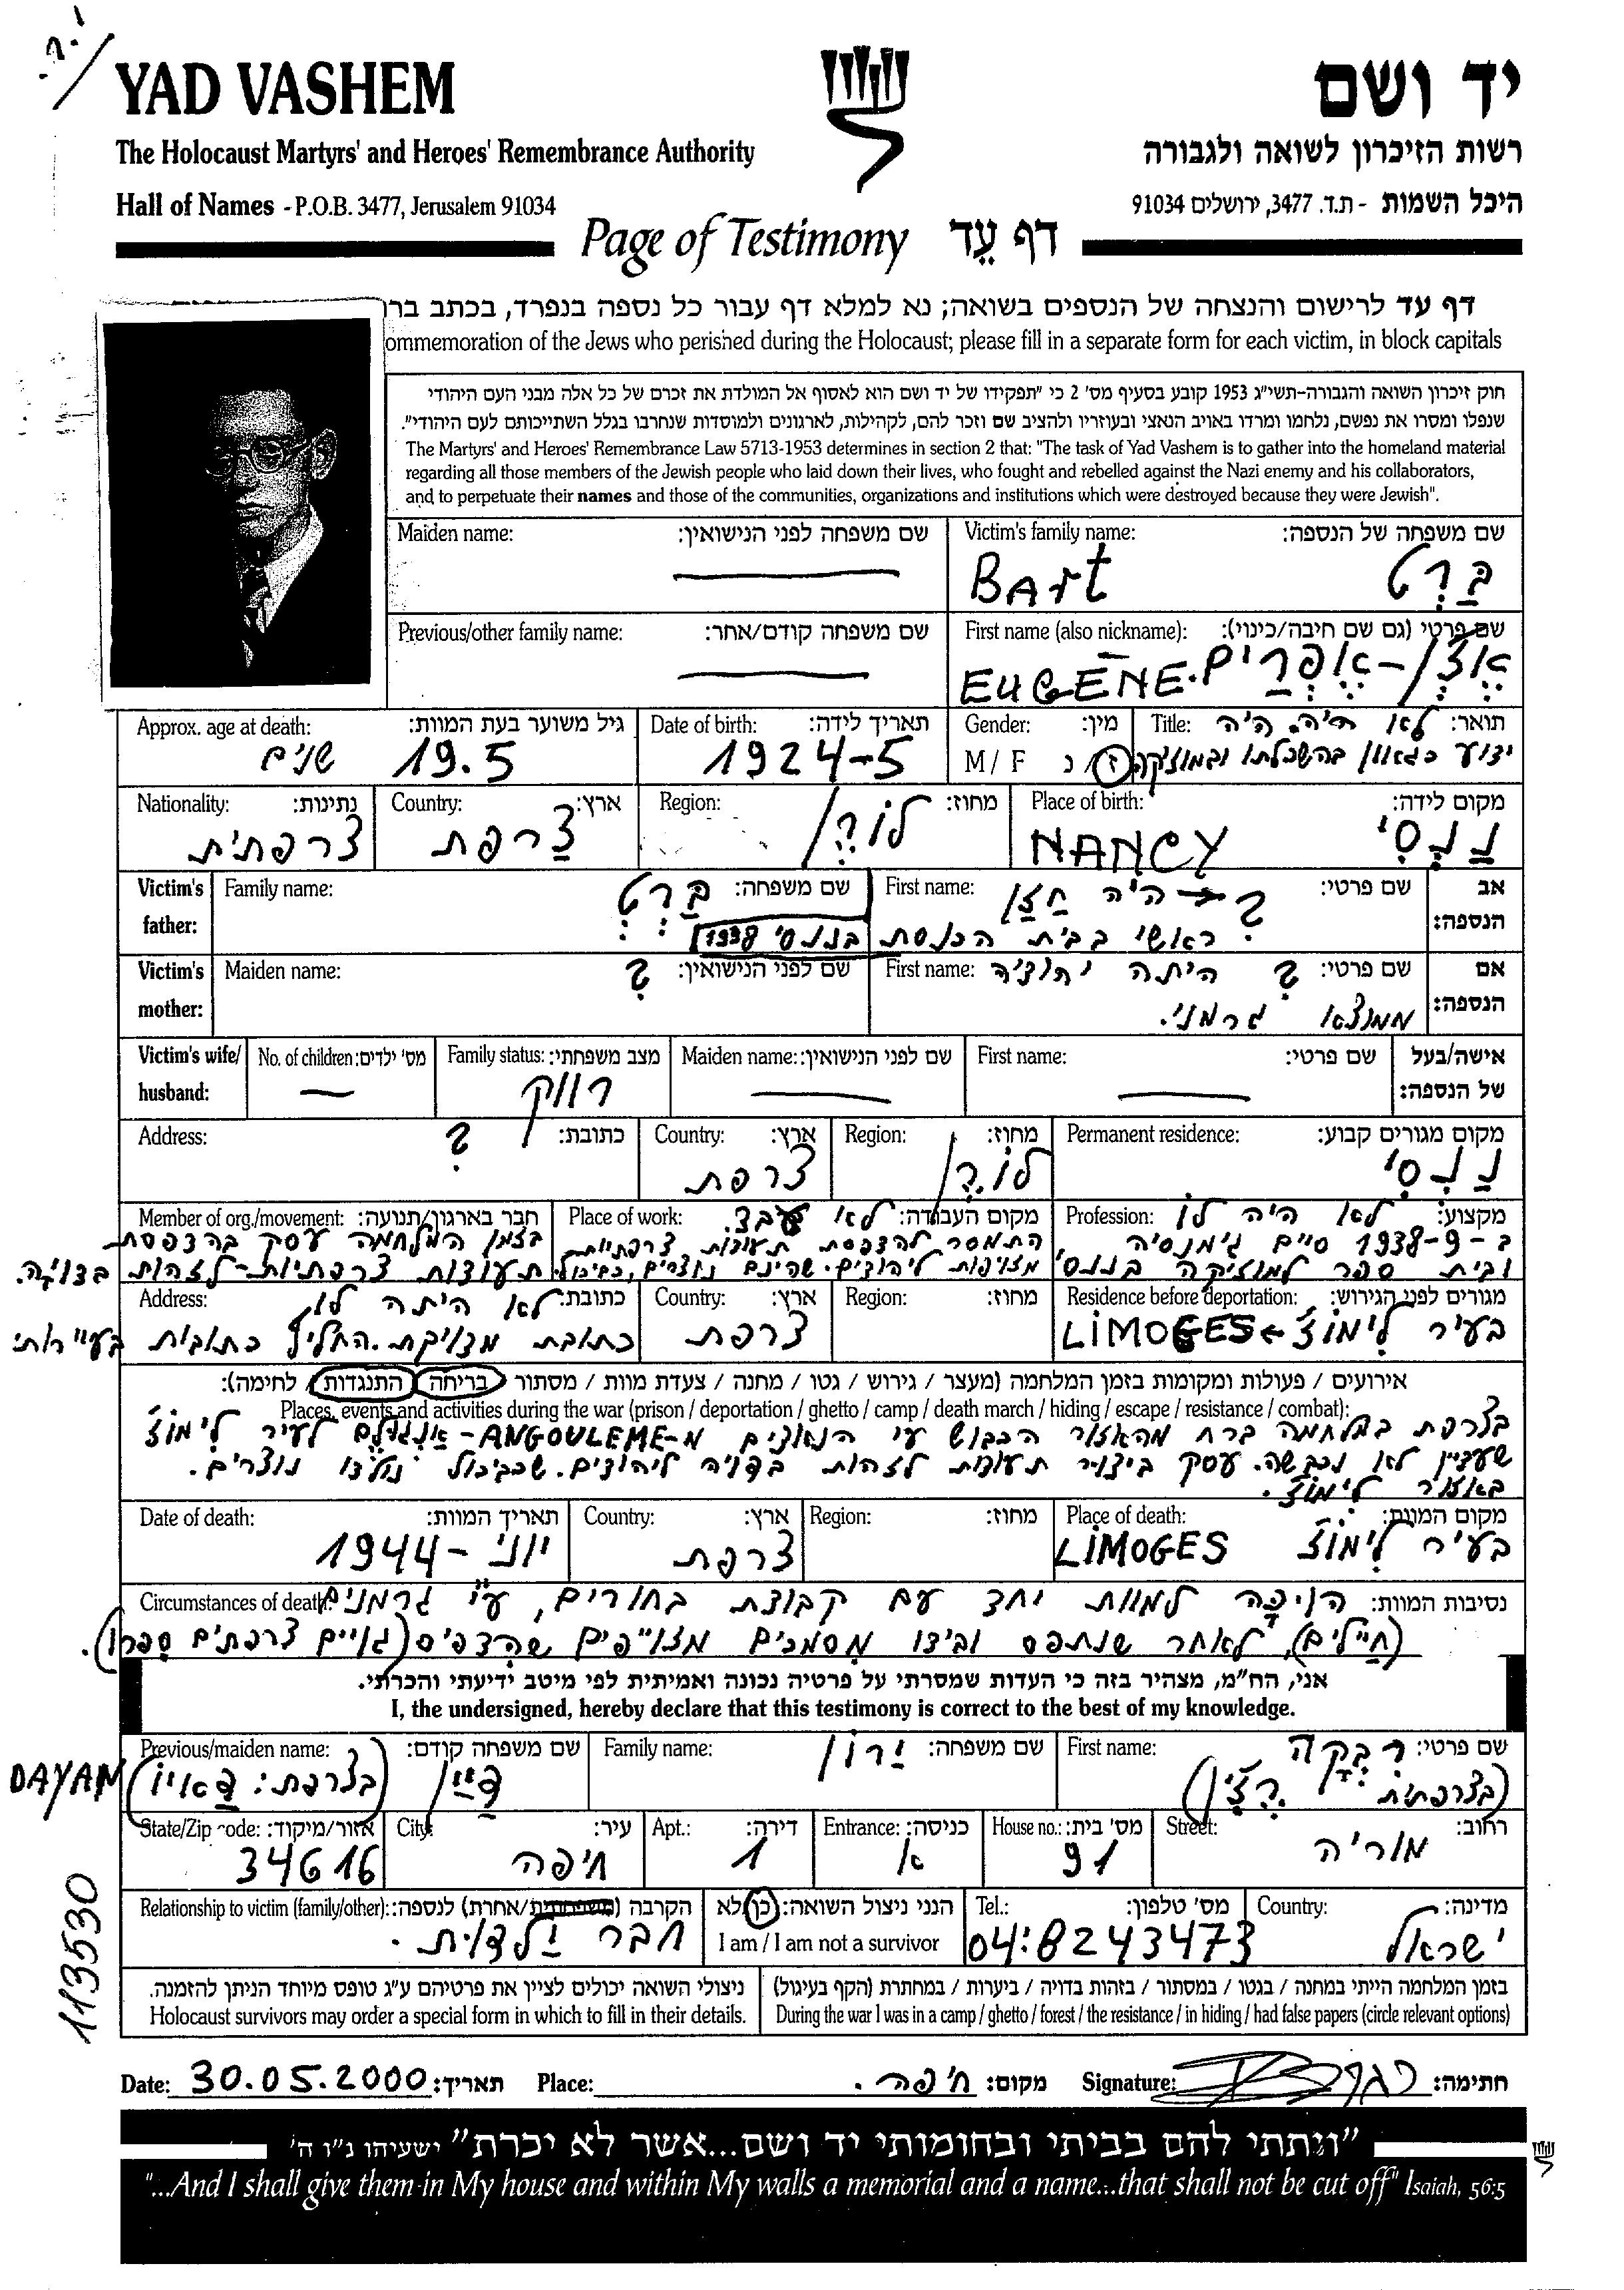 YAD VASHEM
יד ושם
The Holocaust Martyrs' and Heroes' Remembrance Authority
רשות הזיכרון לשואה ולגבורה
Hall of Names - P.O.B. 3477, Jerusalem 91034
היכל השמות - ת.ד. 3477, ירושלים 91034
Page of Testimony דף עֵד
דף עד לרישום והנצחה של הנספים בשואה; נא למלא דף עבור כל נספה בנפרד, בכתב
ommemoration of the Jews who perished during the Holocaust; please fill in a separate form for each victim, in block capitals
חוק זיכרון השואה והגבורה-תשי״ג 1953 קובע בסעיף מס׳ 2 כי ״תפקידו של יד ושם הוא לאסוף אל המולדת את זכרם של כל אלה מבני העם היהודי
שנפלו ומסרו את נפשם, נלחמו ומרדו באויב הנאצי ובעוזריו ולהציב שם וזכר להם, לקהילות, לארגונים ולמוסדות שנחרבו בגלל השתייכותם לעם היהודי״.
The Martyrs' and Heroes' Remembrance Law 5713-1953 determines in section 2 that: "The task of Yad Vashem is to gather into the homeland material
regarding all those members of the Jewish people who laid down their lives, who fought and rebelled against the Nazi enemy and his collaborators,
and to perpetuate their names and those of the communities, organizations and institutions which were destroyed because they were Jewish".
שם משפחה של הנספה: Victim's family name:
בַּרְט BArt
שם משפחה לפני הנישואין: Maiden name:
שם פרטי (גם שם חיבה/כינוי): First name (also nickname):
אֶפְרַיִם EUGÈNE
שם משפחה קודם/אחר: Previous/other family name:
תואר: Title: לא היה. היה
ידוע כגאון בהשכלתו ובמוזיקה
מין: Gender:
ז / נ M / F
תאריך לידה: Date of birth:
1924-5
גיל משוער בעת המוות: Approx. age at death:
19.5 שנים
מקום לידה: Place of birth:
נַנְסִי NANCY
מחוז: Region:
לוֹרֵן
ארץ: Country:
צרפת
נתינות: Nationality:
צרפתית
אב הנספה: Victim's father:
שם פרטי: First name: ? → היה חַזָן
ראשי בבית הכנסת בננסי 1938
שם משפחה: Family name: בַּרְט
אם הנספה: Victim's mother:
שם פרטי: First name: ? היתה יהודיה
ממוצא גרמני.
שם לפני הנישואין: Maiden name: ?
אישה/בעל של הנספה: Victim's wife/ husband:
שם פרטי: First name:
שם לפני הנישואין: Maiden name:
מצב משפחתי: Family status:
רווק
מס׳ ילדים: No. of children:
מקום מגורים קבוע: Permanent residence:
נַנְסִי
מחוז: Region:
לוֹרֵן
ארץ: Country:
צרפת
כתובת: Address: ?
מקצוע: Profession: לא היה לו
ב-1938-9 סיים גימנסיה
ובית ספר למוזיקה בננסי
מקום העבודה: Place of work: לא עבד.
התמסר להדפסת תעודות צרפתיות
מזויפות ליהודים. שהינם נוצרים, כביכול
חבר בארגון/תנועה: Member of org./movement:
בזמן המלחמה עסק בהדפסת
תעודות צרפתיות-לזהות בדויה.
מגורים לפני הגירוש: Residence before deportation:
בעיר לִימוֹז ← LiMOGES
מחוז: Region:
ארץ: Country:
צרפת
כתובת: Address: לא היתה לו
כתובת מדויקת. החליף כתובות
אירועים / פעולות ומקומות בזמן המלחמה (מעצר / גירוש / גטו / מחנה / צעדת מוות / מסתור / בריחה / התנגדות / לחימה):
Places, events and activities during the war (prison / deportation / ghetto / camp / death march / hiding / escape / resistance / combat):
בצרפת במלחמה ברח מהאזור הכבוש ע״י הנאצים מ-ANGOULEME-אַנְגוּלֶם לעיר לִימוֹז
שעדיין לא נכבשה. עסק ביצור תעודות לזהות בדויה ליהודים. שכביכול נולדו נוצרים.
באזור לִימוֹז.
מקום המוות: Place of death:
בעיר לִימוֹז LiMOGES
מחוז: Region:
ארץ: Country:
צרפת
תאריך המוות: Date of death:
יוני - 1944
נסיבות המוות: Circumstances of death: הוּכָּה למוות יחד עם קבוצת בחורים, ע״י גרמנים
(חַיָּלים), לאחר שנתפס ובידו מסמכים מזוייפים שהדפיס (גויים צרפתים סִפרו).
אני, הח״מ, מצהיר בזה כי העדות שמסרתי על פרטיה נכונה ואמיתית לפי מיטב ידיעתי והכרתי.
I, the undersigned, hereby declare that this testimony is correct to the best of my knowledge.
שם פרטי: First name: רִבְקָה
(בצרפתית
שם משפחה: Family name: ירון
שם משפחה קודם: Previous/maiden name:
דַיָין (בצרפת: DAYAN
רחוב: Street:
מוריה
מס׳ בית: House no.:
91
כניסה: Entrance:
א
דירה: Apt.:
1
עיר: City:
חיפה
אזור/מיקוד: State/Zip code:
34616
מדינה: Country:
ישראל
מס׳ טלפון: Tel.:
04:8243473
הנני ניצול השואה: כן/לא
I am / I am not a survivor
הקרבה (משפחתית/אחרת) לנספה: Relationship to victim (family/other):
חבר ילדות.
בזמן המלחמה הייתי במחנה / בגטו / במסתור / בזהות בדויה / ביערות / במחתרת (הקף בעיגול)
During the war I was in a camp / ghetto / forest / the resistance / in hiding / had false papers (circle relevant options)
ניצולי השואה יכולים לציין את פרטיהם ע״ג טופס מיוחד הניתן להזמנה.
Holocaust survivors may order a special form in which to fill in their details.
113530
Date: 30.05.2000 תאריך: Place: חיפה. מקום: Signature: חתימה:
״ונתתי להם בביתי ובחומותי יד ושם...אשר לא יכרת״ ישעיהו נ״ו ה׳
"...And I shall give them in My house and within My walls a memorial and a name...that shall not be cut off" Isaiah, 56:5